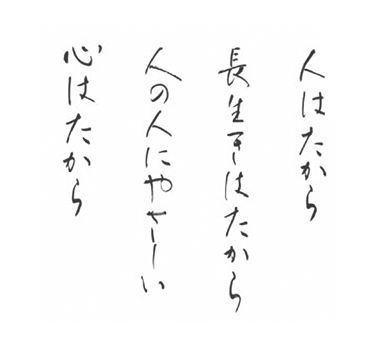 人はたから
長生きはたから
人の人にやさしい
心はたから